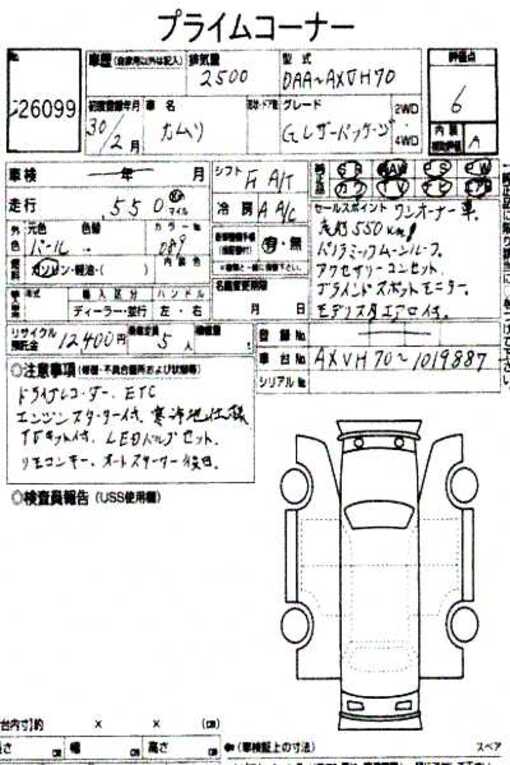 プライムコーナー
No.
26099
車歴 (自家用以外は記入)
排気量 2500
型式 DAA~AXVH70
評価点 6
初度登録年月 30/2月
車名 カムリ
形状・ドア数
グレード Gレザーパッケージ
2WD
4WD
内装 A
車検 年 月
シフト F A/T
走行 550 Km マイル
冷房 A A/C
セールスポイント ワンオーナー車.
走行550km!
外色 元色 パール 色替 カラーNo 089
有・無
パノラミックムーンルーフ.
ガソリン・軽油・( ) 内装色
アクセサリーコンセント.
名義変更期限 月 日
ブラインドスポットモニター.
輸入区分 ハンドル
ディーラー・並行 左・右
モデリスタエアロ付.
リサイクル預託金 12400円 乗車定員 5人 積載量 t
登録No.
車台No. AXVH70~1019887
シリアルNo.
◎注意事項 (修復・不具合箇所および状態等)
ドライブレコーダー. ETC
エンジンスターター付. 寒冷地仕様
TVキット付. LEDバルブセット.
リモコンキー. オートスターター後日.
◎検査員報告 (USS使用欄)
台内寸)約 × × (cm)
長さ cm 幅 cm 高さ cm
(車検証上の寸法)
スペア